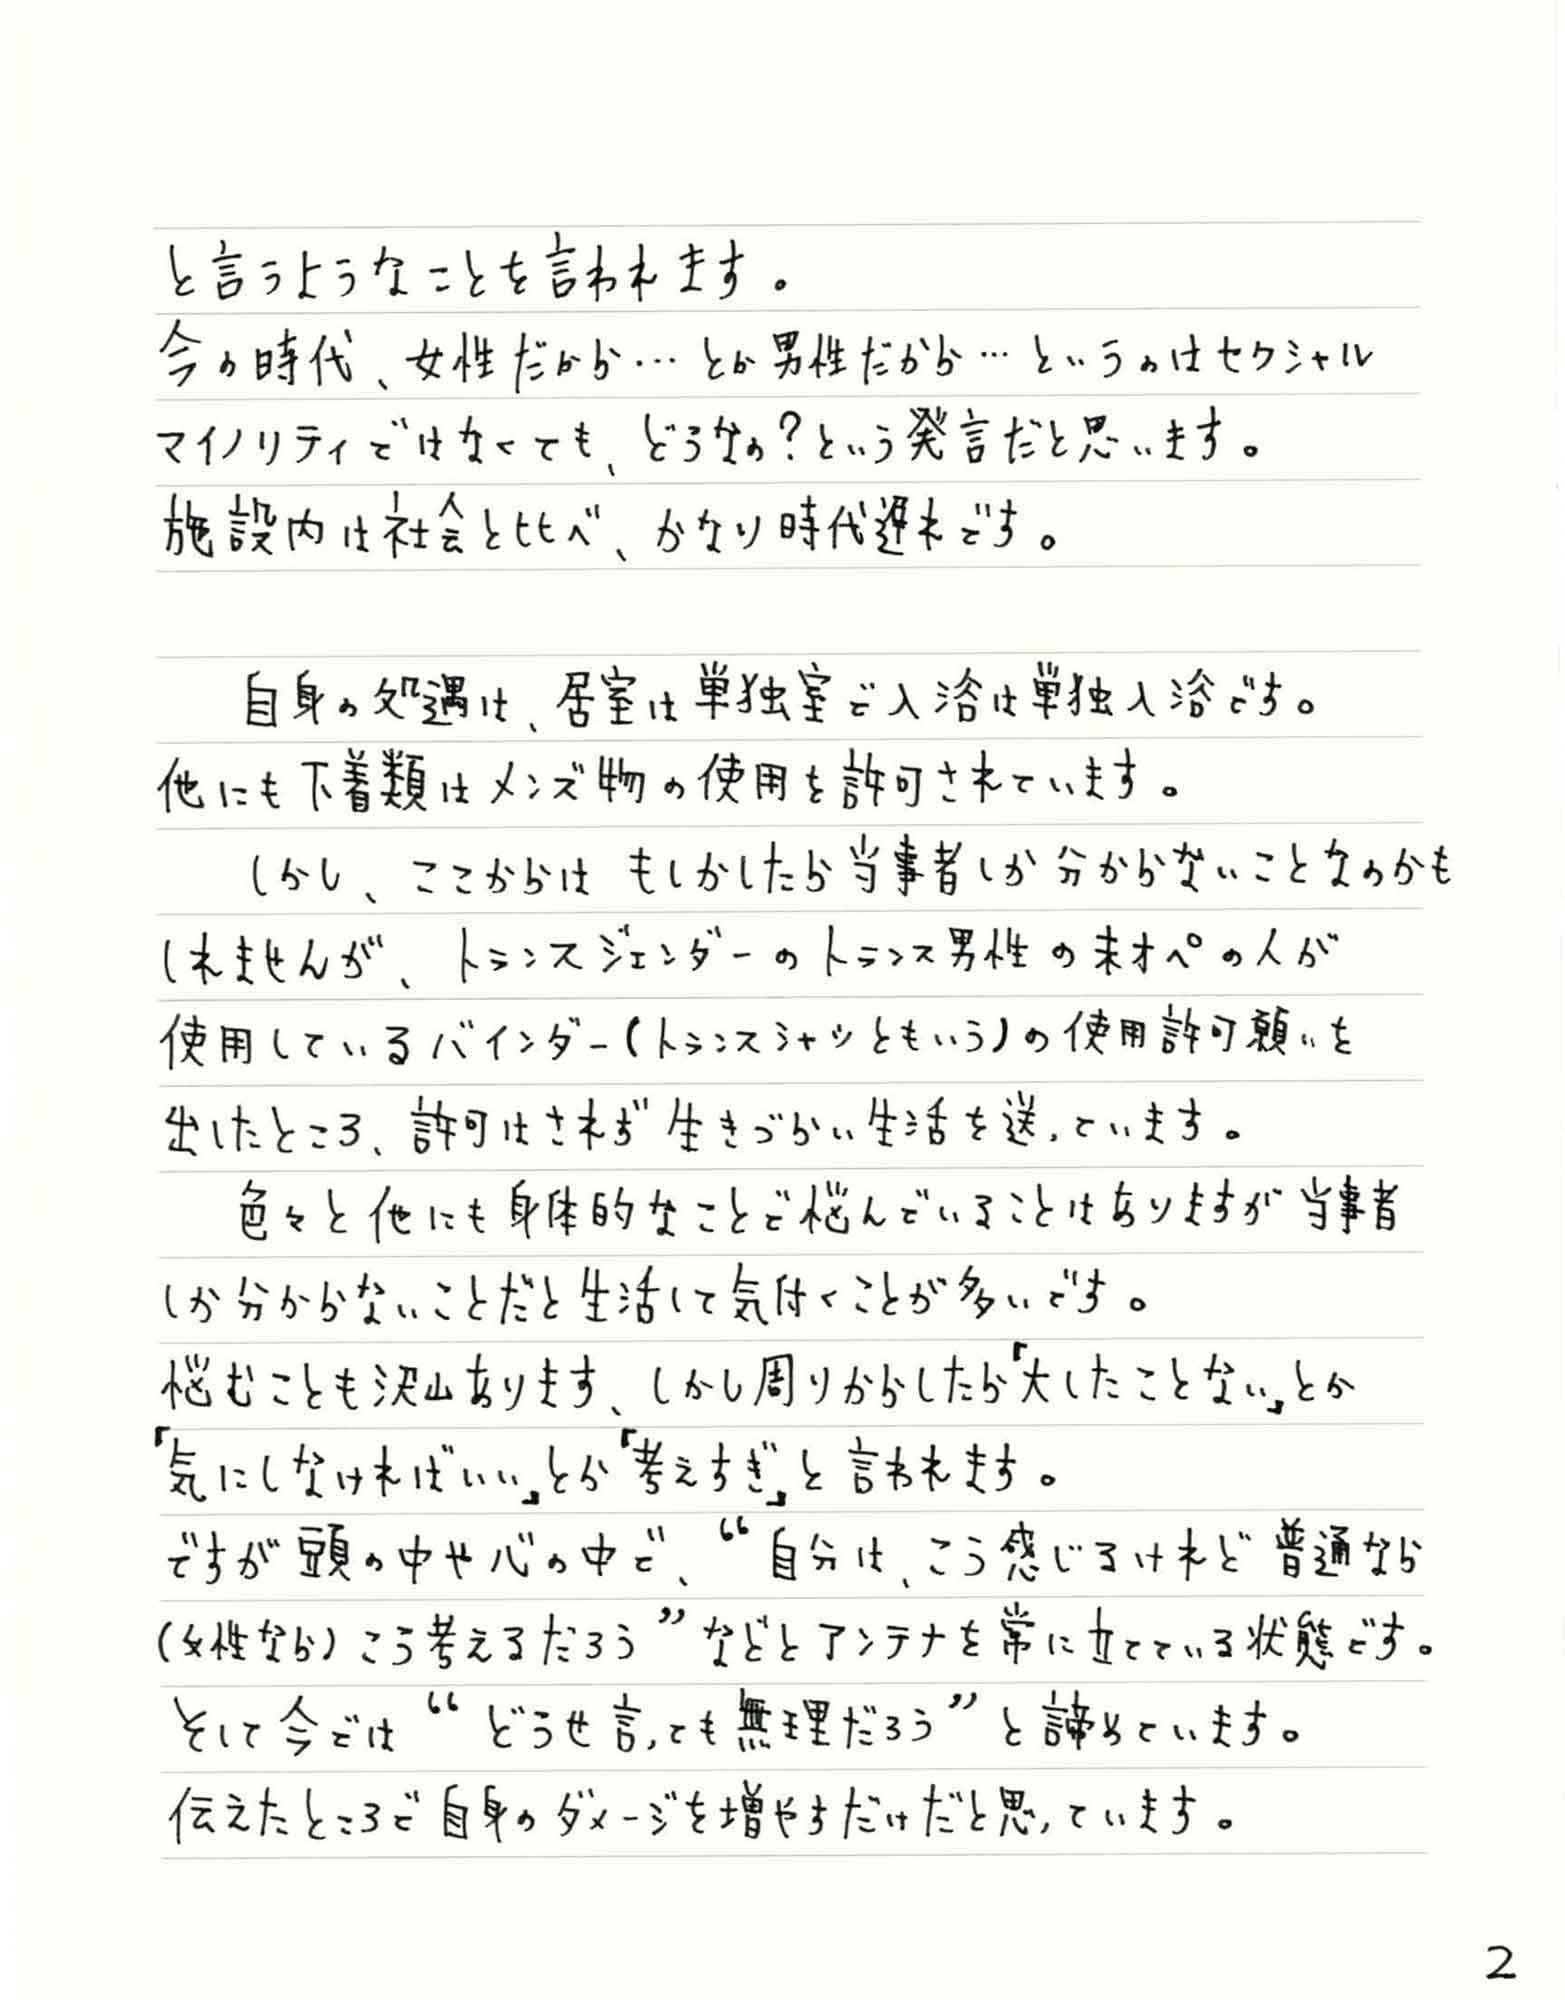 と言うようなことを言われます。
今の時代、女性だから…とか男性だから…というのはセクシャル
マイノリティではなくても、どうなの?という発言だと思います。
施設内は社会と比べ、かなり時代遅れです。
自身の処遇は、居室は単独室で入浴は単独入浴です。
他にも下着類はメンズ物の使用を許可されています。
しかし、ここからは もしかしたら当事者しか分からないことなのかも
しれませんが、トランスジェンダーのトランス男性の未オペの人が
使用しているバインダー(トランスシャツともいう)の使用許可願いを
出したところ、許可はされず生きづらい生活を送っています。
色々と他にも身体的なことで悩んでいることはありますが当事者
しか分からないことだと生活して気付くことが多いです。
悩むことも沢山あります、しかし周りからしたら「大したことない」とか
「気にしなければいい」とか「考えすぎ」と言われます。
ですが頭の中や心の中で、“自分は、こう感じるけれど普通なら
(女性なら)こう考えるだろう”などとアンテナを常に立てている状態です。
そして今では“どうせ言っても無理だろう”と諦めています。
伝えたところで自身のダメージを増やすだけだと思っています。
2